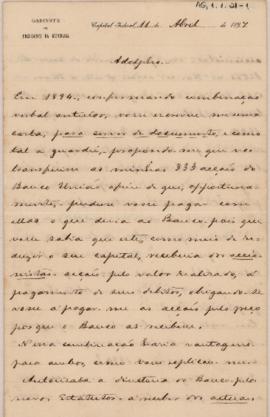 AG, 1.1.41-1
GABINETE
DO
PRESIDENTE DA REPUBLICA
Capital Federal, 11 de Abril de 1897
Adolpho.
Em 1894, confirmando combinação
verbal anterior, você n'uma
carta, para servir de documento, e como
tal a guardei, propondo-me que
transferisse as minhas 333 acções do
Banco União, afim de que, opportuna-
mente, pudesse você pagar com
ellas o que devia ao Banco, pois que
você sabia que este, como meio de re-
duzir o seu capital, receberia dos accio-
nistas acções pelo valor realizado, em
pagamento de seus debitos, obrigando-
se você a pagar-me as acções pelo preço
por que o Banco as recebesse.
N'essa combinação havia vantagem
para ambos, como você explicou-me.
Autorizada a directoria do Banco pelos
novos Estatutos a receber dos